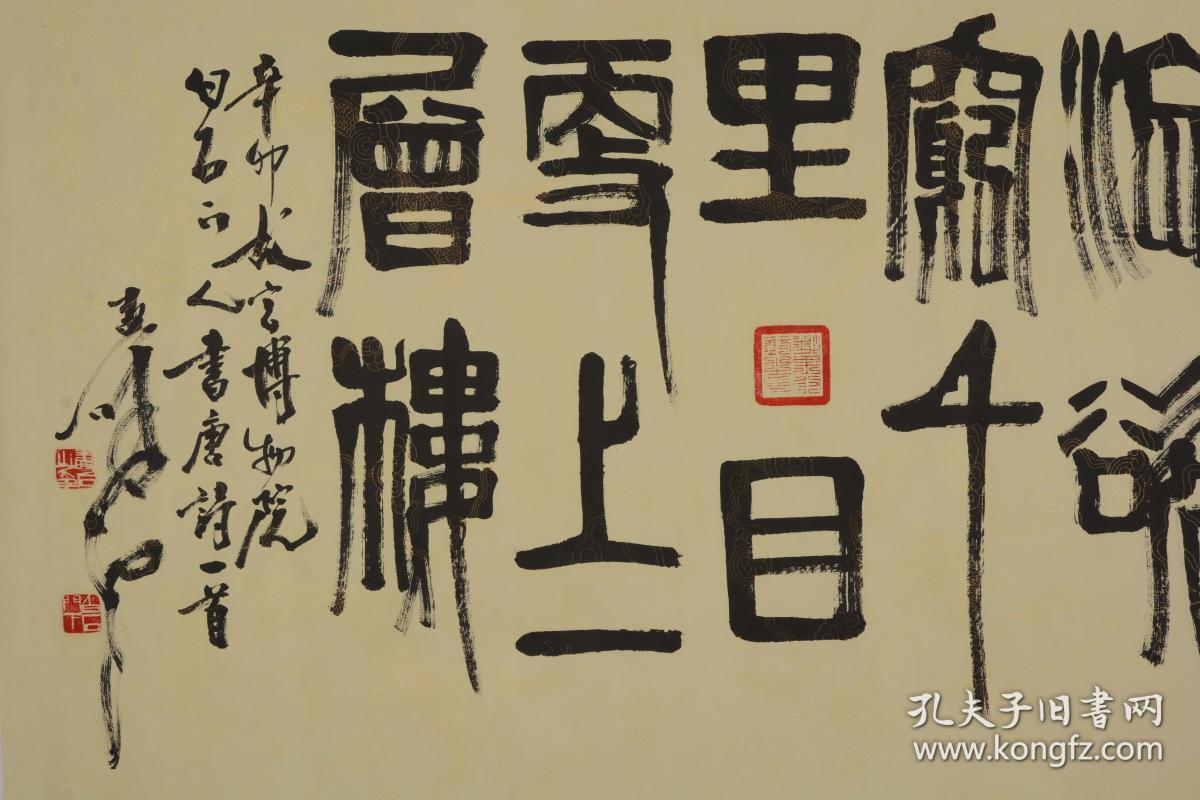 流欲
窮千
里目
更上一
層樓
辛卯故宫博物院
白石门人書唐詩一首
孔夫子旧書网
www.kongfz.com